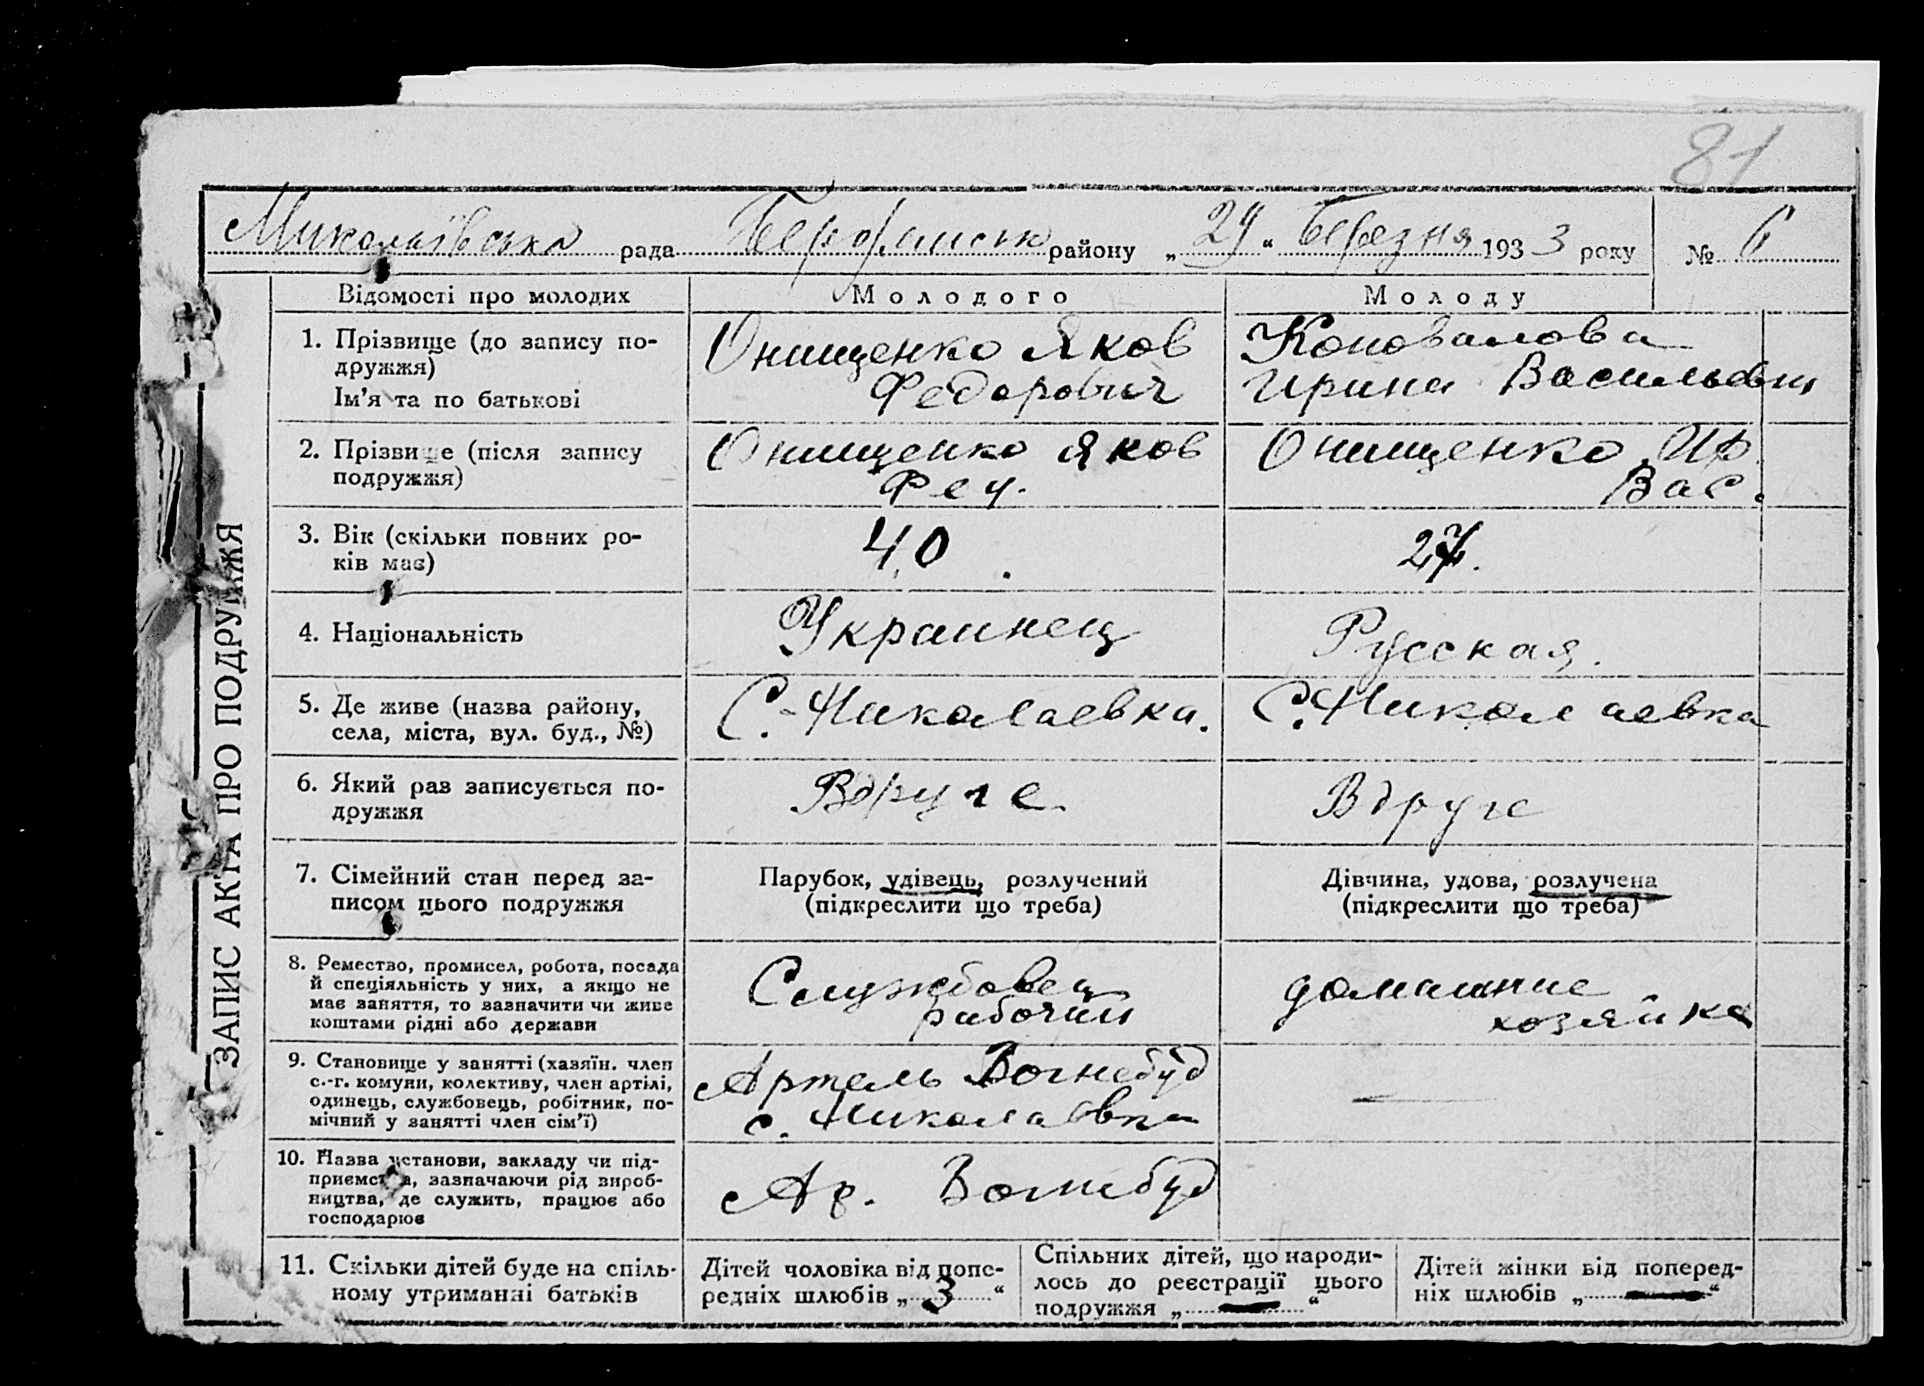 81
Миколаївська рада Бердянськ району „29“ Березня 1933 року № 6
ЗАПИС АКТА ПРО ПОДРУЖЖЯ
Відомості про молодих Молодого Молоду
1. Прізвище (до запису по-
дружжя)
Ім’я та по батькові
Онищенко Яков
Федорович
Коновалова
Ирина Васильевн
2. Прізвище (після запису
подружжя)
Онищенко Яков
Фед.
Онищенко Ир
Вас.
3. Вік (скільки повних ро-
ків має)
40
27.
4. Національність
Украинец
Русская.
5. Де живе (назва району,
села, міста, вул. буд., №)
С. Николаевка.
С. Николаевка
6. Який раз записується по-
дружжя
Вдруге
Вдруге
7. Сімейний стан перед за-
писом цього подружжя
Парубок, удівець, розлучений
(підкреслити що треба)
Дівчина, удова, розлучена
(підкреслити що треба)
8. Ремество, промисел, робота, посада
й спеціяльність у них, а якщо не
має заняття, то зазначити чи живе
коштами рідні або держави
Службовец
рабочии
домашние
хозяйка
9. Становище у занятті (хазяїн. член
с.-г. комуни, колективу, член артілі,
одинець, службовець, робітник, по-
мічний у занятті член сім’ї)
Артель Вогнебуд
с. Николаевка
10. Назва установи, закладу чи під-
приємства, зазначаючи рід вироб-
ництва, де служить, працює або
господарює
Ар. Вогнебуд
11. Скільки дітей буде на спіль-
ному утриманні батьків
Дітей чоловіка від попе-
редніх шлюбів „3“
Спільних дітей, що народи-
лось до реєстрації цього
подружжя „—“
Дітей жінки від поперед-
ніх шлюбів „—“